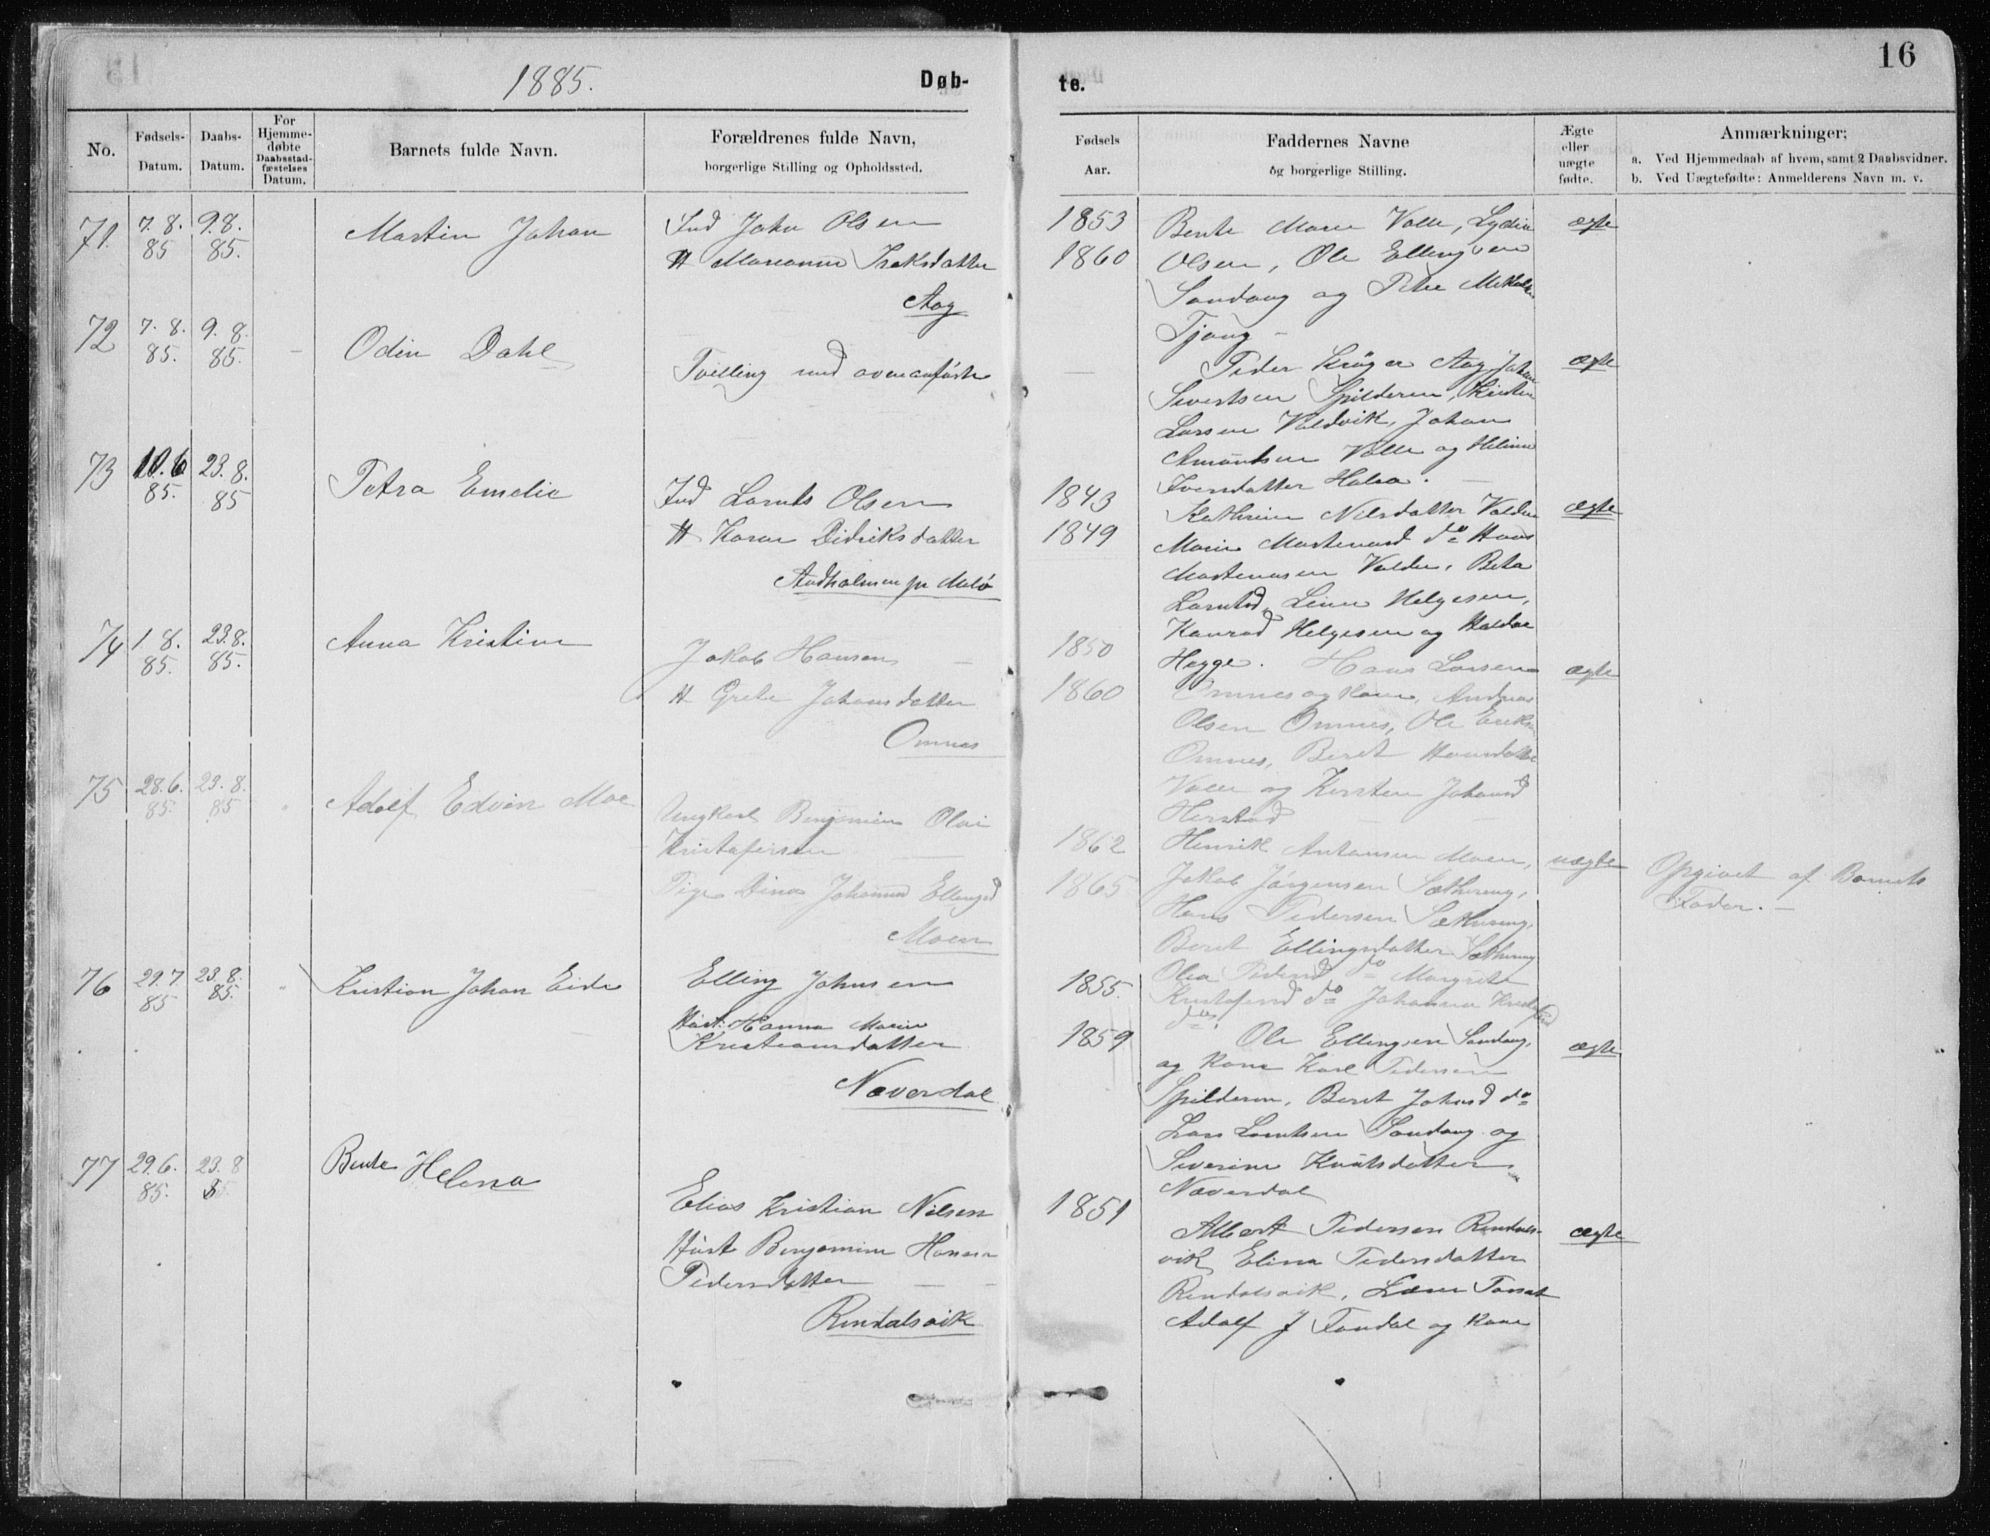 1885.
Døb-
te.
16
No.
Fødsels-
Datum.
Daabs-
Datum.
For
Hjemme-
døbte
Daabsstad-
fæstelses
Datum.
Barnets fulde Navn.
Forældrenes fulde Navn,
borgerlige Stilling og Opholdssted.
Fødsels
Aar.
Faddernes Navne
og borgerlige Stilling.
Ægte
eller
uægte
fødte.
Anmærkninger;
a. Ved Hjemmedaab af hvem, samt 2 Daabsvidner.
b. Ved Uægtefødte: Anmelderens Navn m. v.
71
7. 8.
85
9.8.
85.
Martin Johan
Ind John Olsen
H Marianna Isaksdatter
Aag
1853
1860
Bente Marie Valle, Lydia
Olsen, Ole Ellingsen
Sandaag og
Tjong -
ægte
72
7. 8.
85.
9. 8.
85.
Odin Dahl
Tvilling med ovenanførte
Peder Krøger Aag, Johan
Sivertsen Spilderen,
Larsen Valdvik, Johan
Amundsen Valle og Heline
Iversdatter
ægte
73
10.6
85.
23.8.
85
Petra Emelie
Ind Lornts Olsen
H Karen Didriksdatter
pr Melø
1843
1849
Kathrine Nilsdatter
Marie do Hans
Beta
Line Helgesen,
Konrad Helgesen og
Hegge.
ægte
74
1. 8.
85.
23.8.
85.
Anna Kristine
Jakob Hansen
H Grete Johansdatter
Omnes
1850
1860
Hans Larsen
Omnes og Kone, Andreas
Olsen Omnes, Ole
Omnes, Beret
Valle og Kirsten Johansd
ægte
75
28.6.
85.
23.8.
85
Adolf Edvin Moe
Ungkarl Benjamin Olai
Kristofersen
Pige Dina Johanna Ellingsd
Moen
1862
1865
Henrik Antonsen Moen,
Jakob Jørgensen
Hans Pedersen
Beret Ellingsdatter
Olea Pedersd do Margrete
Kristofersd do Johanna
do.
uægte
Opgivet af Barnets
Fader. -
76
29.7
85
23.8.
85.
Kristian Johan Eide
Elling Johnsen
Hust. Hanna Marie
Kristiansdatter
Næverdal
1855.
1859
Ole Ellingsen Sandaag,
og Kone Karl Pedersen
Spilderen, Beret Johnsd do
Lars Lorntsen Sandaag og
Severine Knutsdatter
Næverdal
ægte
77
29.6.
85.
23.8
85.
Bente Helena
Elias Kristian Nilsen
Hust Benjamine Hanna
Pedersdatter
Rendalsvik
1851
Albert Pedersen Rendals-
vik Elina Pedersdatter
Rendalsvik,
Adolf J Fondal og Kone
ægte